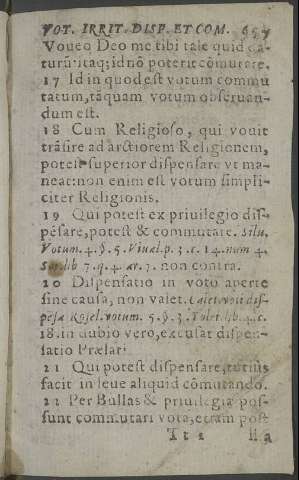 VOT. IRRIT. DISP. ET COM. 657
Voueo Deo me tibi tale quid da-
turũ: itaq; id nõ poterit cõmutare.
17 Id in quod est votum commu
tatum, tãquam votum obseruan-
dum est.
18 Cum Religioso, qui vouit
trãsire ad arctiorem Religionem,
potest superior dispensare vt ma-
neat: non enim est votum simpli-
citer Religionis.
19 Qui potest ex priuilegio dis-
pẽsare, potest & commutare. Silu.
Votum. 4. §. 5. Viual. p. 3. c. 14. num 4.
lib 7. q. 4. ar. 7. non contra.
20 Dispensatio in voto aperte
sine causa, non valet. Caiet. voti dis-
pẽsa Rosel. votum. 5. §. 3. Tolet. lib. 4. c.
18. in dubio vero, excusat dispen-
satio Prælati
21 Qui potest dispensare, tutius
facit in leue aliquid cõmutando.
22 Per Bullas & priuilegia pos-
sunt commutari vota, etiam post
Tt 2 illa